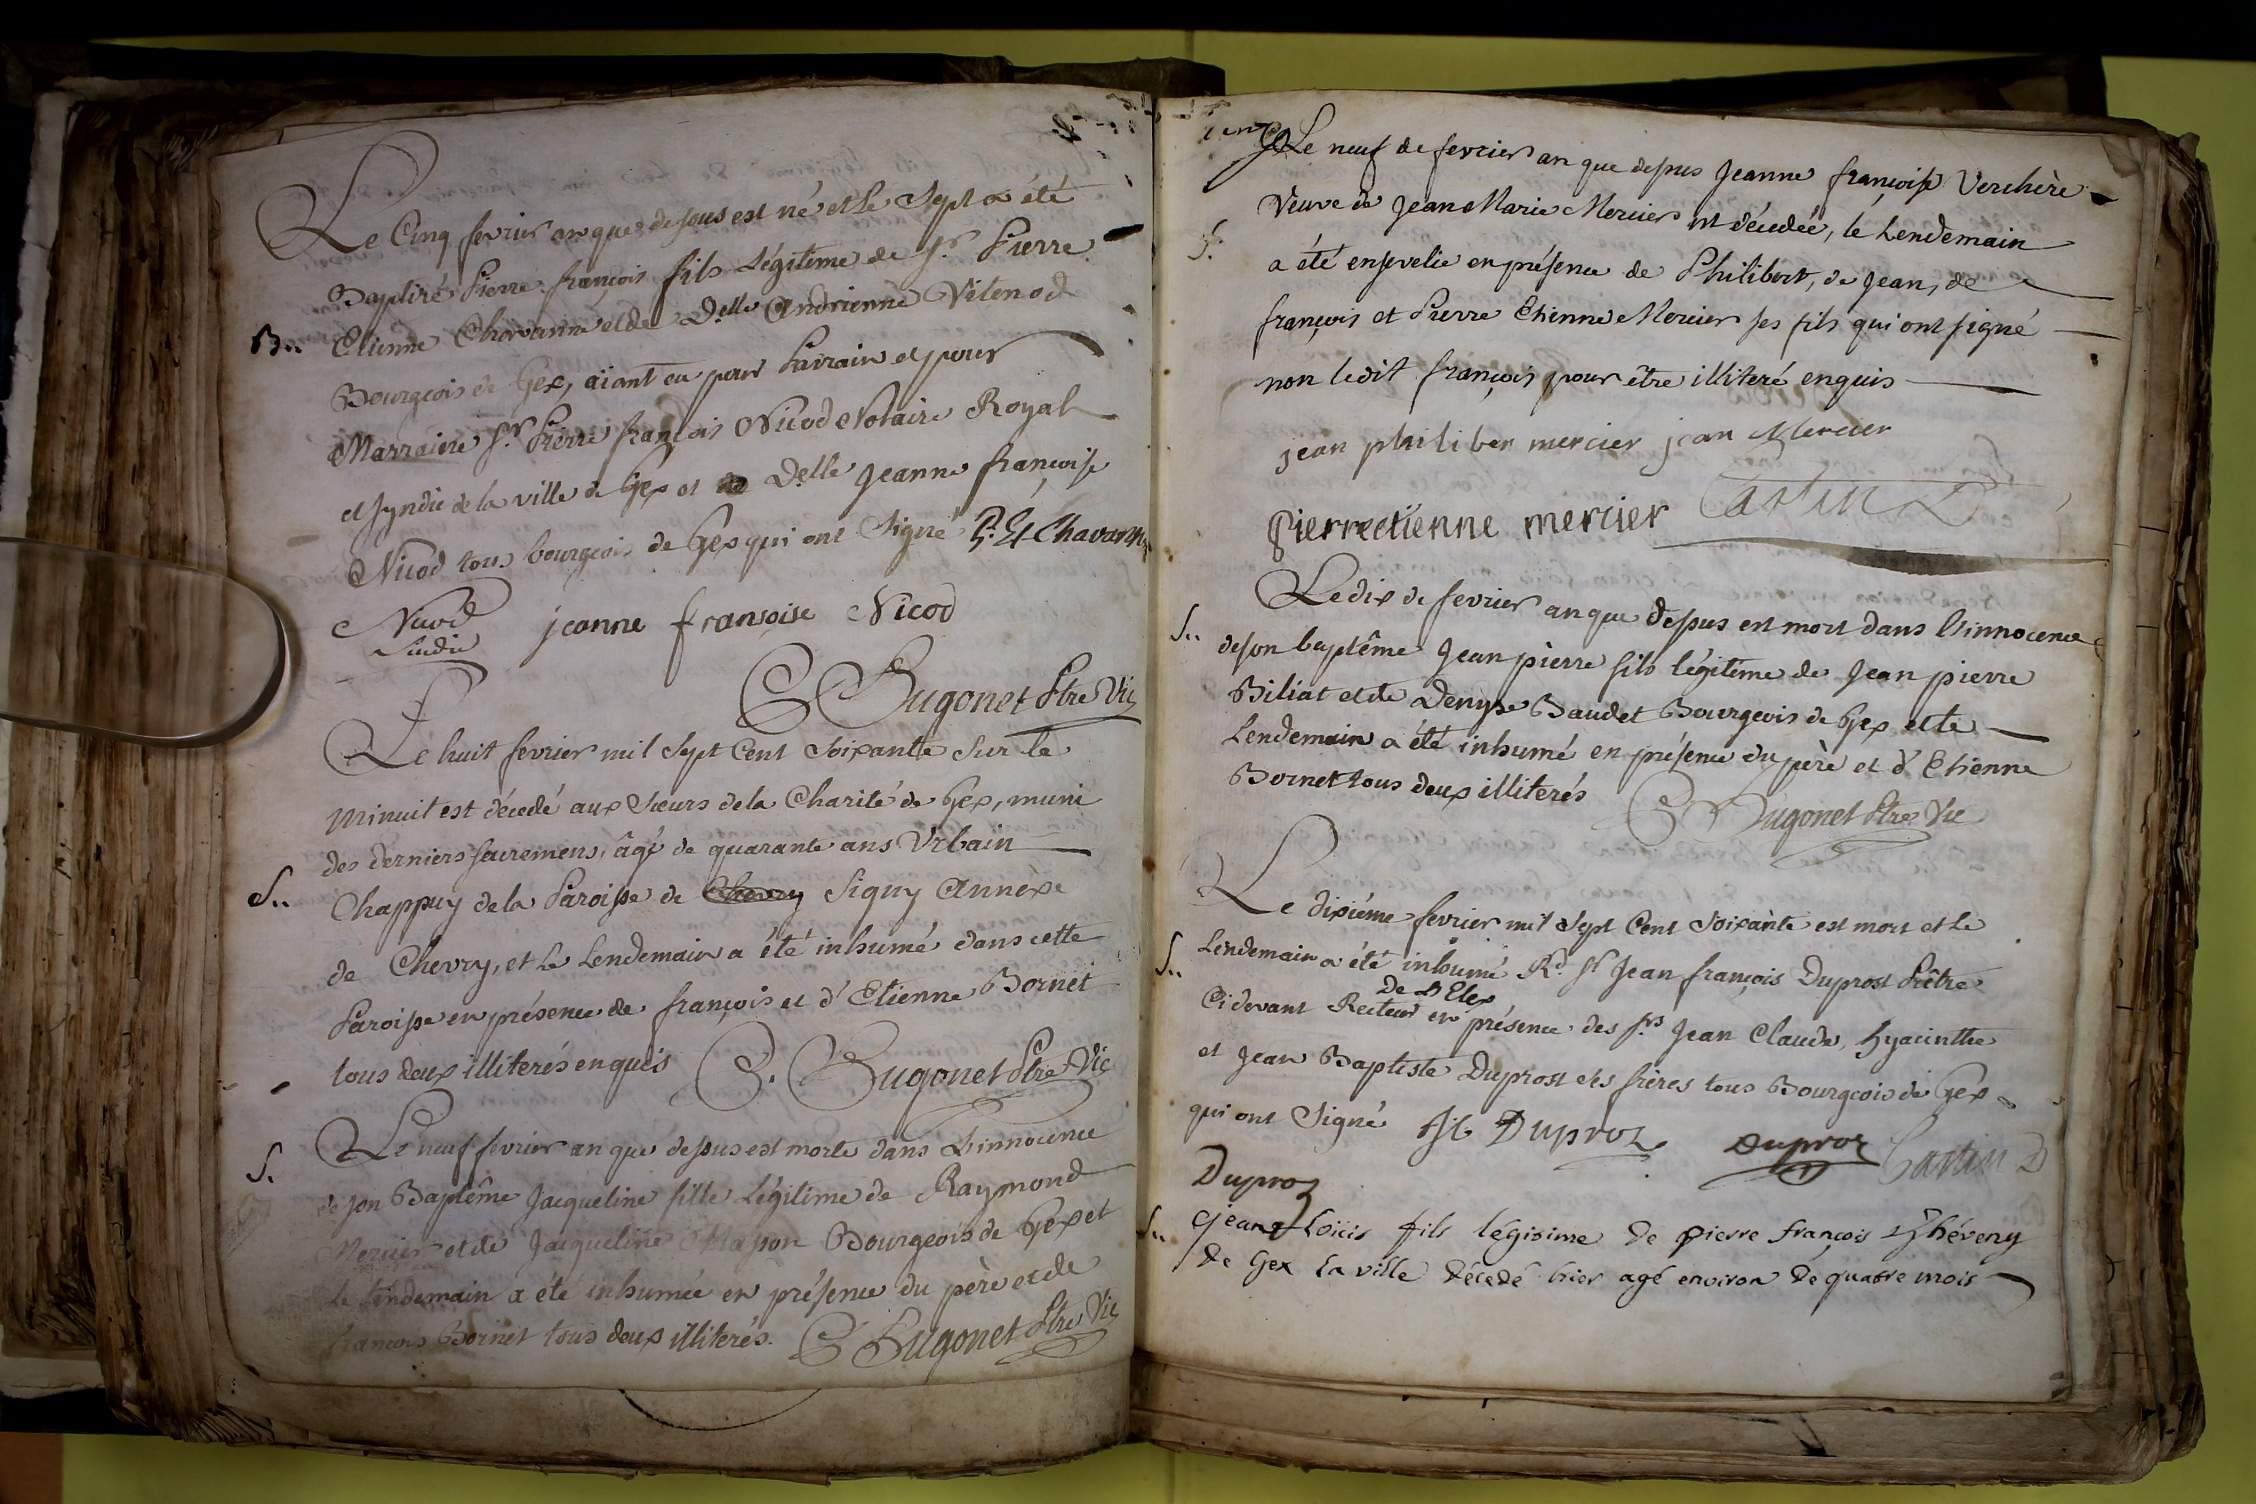 Le Cinq fevrier an que dessous est né et le Sept a été
Baptisé Pierre françois fils Légitime de Sr. Pierre
B.. Etienne Chavanne et de Delle Andrienne Vitenod
Bourgeois de Gex, aiant eu pour Parrain et pour
Marraine Sr. Pierre françois Nicod Notaire Royal
et Syndic de la ville de Gex et Delle Jeanne françoise
Nicod tous bourgeois de Gex qui ont Signé P. Et Chavanne
Nicod jeanne fransoise Nicod
Sindic
Bugonet Ptre Vic
Le huit fevrier mil Sept Cent Soixante Sur le
minuit est décedé aux Sœurs de la Charité de Gex, muni
des derniers Sacremens, âgé de quarante ans Urbain
S.. Chappuy de la Paroisse de Chevry Signy Annéxe
de Chevry, et Le Lendemain a été inhumé dans cette
Paroisse en présence de françois et d'Etienne Bornet
tous deux illiterés enquis Bugonet Ptre Vic
S. Le neuf fevrier an que dessus est morte dans L'innocence
de son Baptême Jacqueline fille Légitime de Raymond
Mercier et de Jacqueline Bourgeois de Gex et
le lendemain a été inhumée en présence du père et de
francois Bornet tous deux illiterés. Bugonet Ptre Vic
Le neuf de fevrier an que dessus Jeanne françoise Verchère
Veuve de Jean Marie Mercier est décedée, le Lendemain
S. a été ensevelie en présence de Philibert, de Jean, de
françois et Pierre Etienne Mercier ses fils qui ont signé
non ledit françois pour être illiteré enquis
jean philiber mercier jean Mercier
Pierre etienne mercier Castin D
Le dix de fevrier an que dessus est mort dans L'innocence
S.. de son baptême Jean pierre fils légitime de Jean pierre
Biliat et de Denyse Baudet Bourgeois de Gex et le
Lendemain a été inhumé en présence du père et d'Etienne
Bornet tous deux illiterés Bugonet Ptre Vic
Le dixiéme fevrier mil Sept Cent Soixante est mort et le
S.. Lendemain a été inhumé Rd. Sr Jean françois Duprost Prêtre
de L'Elex
Cidevant Recteur en présence des Srs Jean Claude, hyacinthe
et Jean Baptiste Duprost ses frères tous Bourgeois de Gex
qui ont Signé Duproz Duproz Castin D
Duproz
S.. jean Loüis fils légisime de pierre françois
de Gex La ville décedé hier agé environ de quatre mois